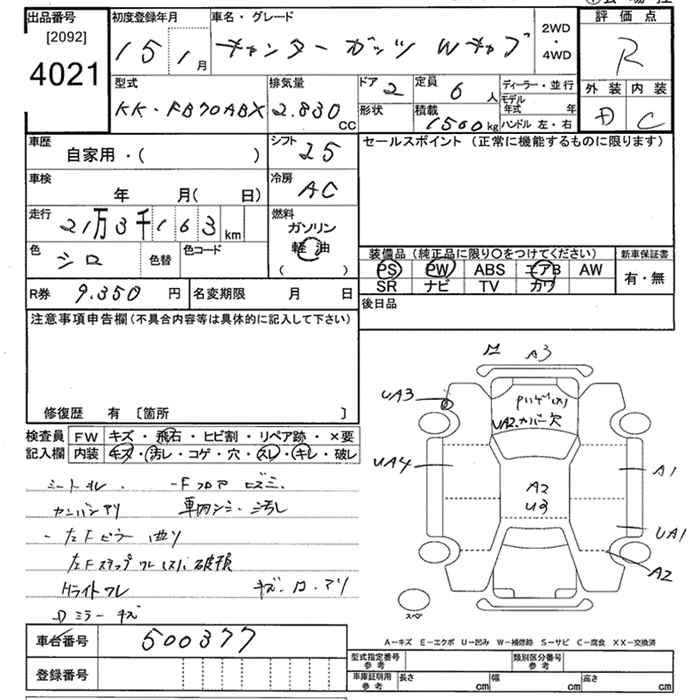 出品番号 初度登録年月 車名・グレード 2WD 評価点
[2092] 15 1月 キャンター ガッツ Wキャブ ・4WD R
4021
型式 排気量 ドア 2 定員 6人 ディーラー・並行 外装 内装
KK-FB70ABX 2.830 CC 形状 積載 1500kg モデル年式 年 D C
ハンドル 左・右
車歴 自家用・( ) シフト 25 セールスポイント (正常に機能するものに限ります)
車検 年 月( 日) 冷房 AC
走行 21万3千163 km 燃料 ガソリン
軽油
( )
色 シロ 色替 色コード
装備品 (純正品に限り○をつけてください) 新車保証書
PS PW ABS エアB AW 有・無
SR ナビ TV カワ
R券 9.350 円 名変期限 月 日 後日品
注意事項申告欄 (不具合内容等は具体的に記入して下さい)
修復歴 有 [箇所 ]
検査員 FW キズ・飛石・ヒビ割・リペア跡・×要
記入欄 内装 キズ・汚レ・コゲ・穴・スレ・キレ・破レ
シートキレ
車内シミ・汚レ
左Fピラー曲り
左Fステップ
破損
Hライトワレ
Dミラーキズ
車台番号 500377
登録番号
A3
UA3
UA2.カバー欠
UA4
A1
A2
U3
UA1
A2
スペア
A-キズ E-エクボ U-凹み W-補修跡 S-サビ C-腐食 XX-交換済
型式指定番号 参考 類別区分番号 参考
車庫証明用 参考 長さ cm 幅 cm 高さ cm